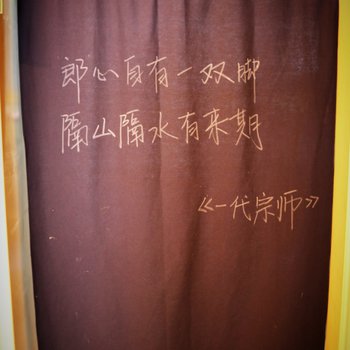 郎心自有一双脚
隔山隔水有来期
《一代宗师》